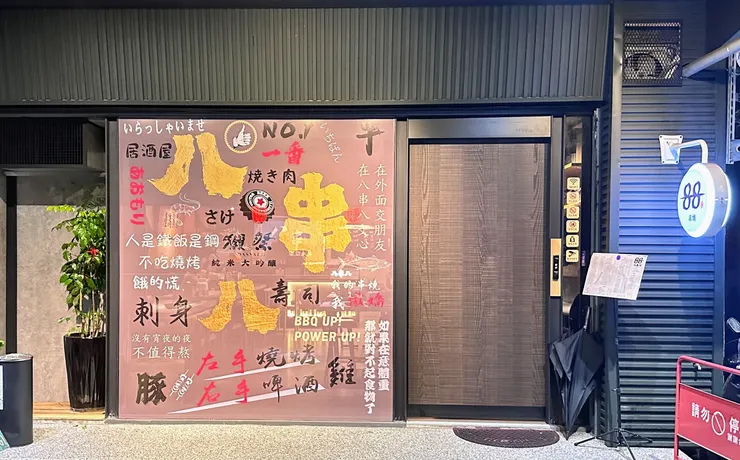 いらっしゃいませ
NO.1
いちばん
牛
居酒屋
八
一番
焼き肉
おおもり
在外面交朋友
在八串八交心
さけ
串
人是鐵飯是鋼
獺祭
純米大吟釀
不吃燒烤
餓的慌
刺身
八
壽司
BBQ UP!
POWER UP!
沒有宵夜的夜
不值得熬
豚
左手燒烤
右手啤酒
雞
如果在意體重
那就對不起食物了
88
請勿停